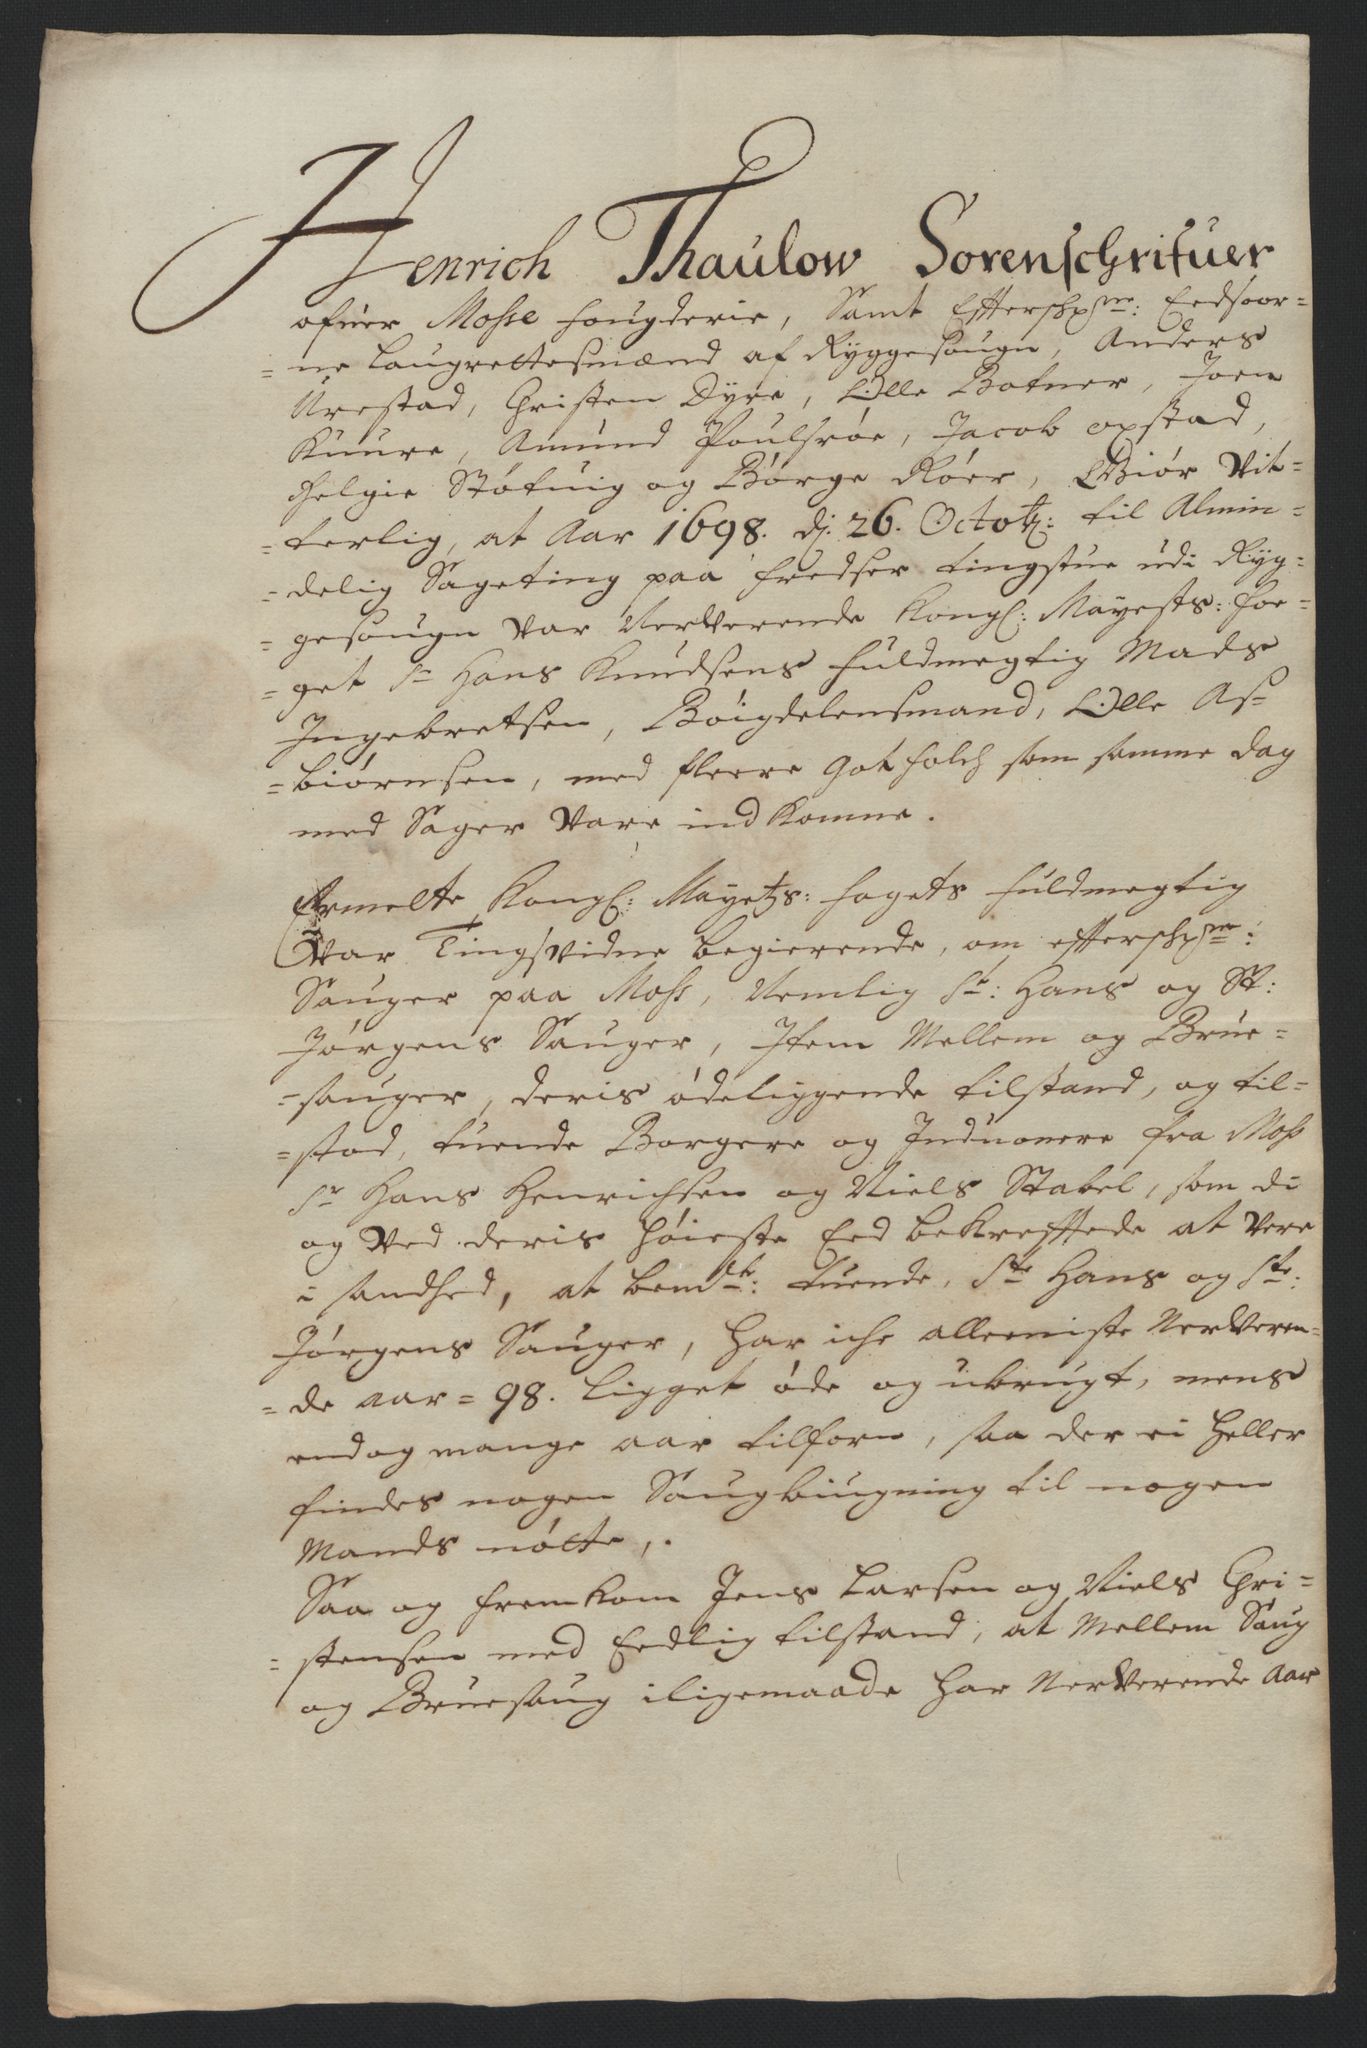 Henrich Thaulow Sorenschrifuer
ofuer Mosse fougderie, Samt Efftersch:ne: Eedsoor-
=ne Laugrettesmænd af Ryggesougn, Anders
Urestad, Christen Dyre, Olle Botner, Joen
Kuure, Amund Poulsröe, Jacob opstad,
Helgie Støtuig og Börge Röer, Giör Vit-
=terlig, at Aar 1698. dj. 26. Octob: til Almin-
=delig Sageting paa fredser tingstue udi Ryg-
=gesougn var Nerverende Kongl: Mayests: Foe-
=get Sr Hans Knudsens fuldmegtig Mads
Ingebretsen, Böigdelensmand, Olle As-
=biörnsen, med fleere got folch som samme dag
med Sager vare ind komne.
Ermelte Kongl: Mayets: fogets fuldmegtig
var Tingsvidne begierende, om effterschne:
Sauger paa Moss, Nemlig St: Hans og St:
Jörgens Sauger, Item Mellem og Brue-
=sauger, deris ödeliggende tilstand, og til-
=stod, tuende Borgere og Induonere fra Moss
Sr Hans Henrichsen og Niels Stabel, som di
og ved deris höieste Eed bekrefftede at vere
i sandhed, at bemdte: tuende, Ste Hans og Ste:
Jörgens Sauger, har iche alleeniste Nerveren-
=de aar =98. ligget öde og ubrugt, mens
endog mange aar tilforn, saa der ei heller
findes nogen Saugbiugning til nogen
Mands nötte,.
Saa og fremkom Jens Larsen og Niels Chri-
=stensen med Eedlig tilstand, at Mellem Saug
og Bruesaug iligemaade har Nerverende Aar